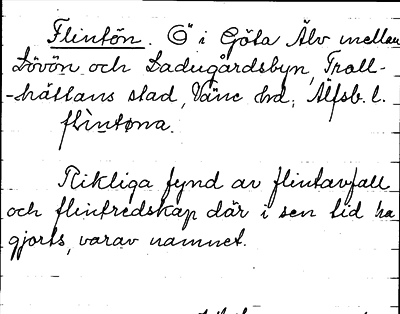 Flintön. Ö i Göta Älv mellan
Lövön och Ladugårdsbyn, Troll-
-hättans stad, Väne hd. Älfsb. l.
flìntøna.
Rikliga fynd av flintavfall
och flintredskap där i sen tid ha
gjorts, varav namnet.